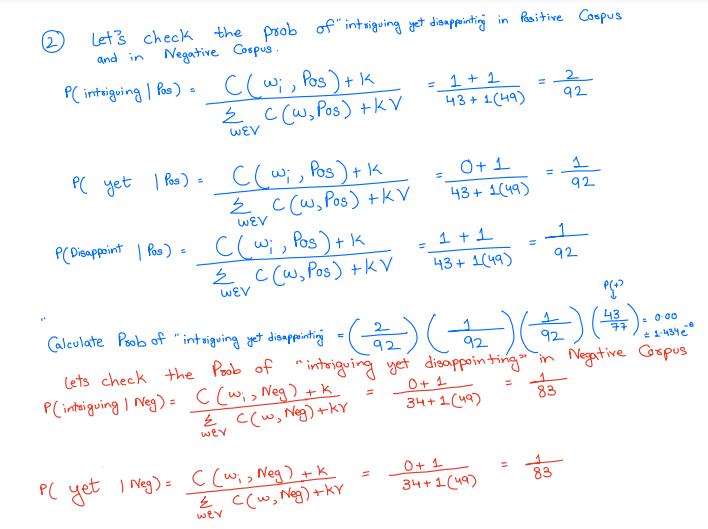 ② Let's check the prob of "intriguing yet disappointing in Positive Corpus
and in Negative Corpus.
P(intriguing | Pos) = C(wi, Pos) + k / Σ w∈V C(w, Pos) + kV = 1 + 1 / 43 + 1(49) = 2 / 92
P( yet | Pos) = C(wi, Pos) + k / Σ w∈V C(w, Pos) + kV = 0 + 1 / 43 + 1(49) = 1 / 92
P(Disappoint | Pos) = C(wi, Pos) + k / Σ w∈V C(w, Pos) + kV = 1 + 1 / 43 + 1(49) = 1 / 92
P(+)
↓
Calculate Prob of "intriguing yet disappointing = (2/92) (1/92) (1/92) (43/77) = 0.00
± 1.434e⁻⁶
Lets check the Prob of "intriguing yet disappointing" in Negative Corpus
P(intriguing | Neg) = C(wi, Neg) + k / Σ w∈V C(w, Neg) + kV = 0 + 1 / 34 + 1(49) = 1 / 83
P( yet | Neg) = C(wi, Neg) + k / Σ w∈V C(w, Neg) + kV = 0 + 1 / 34 + 1(49) = 1 / 83